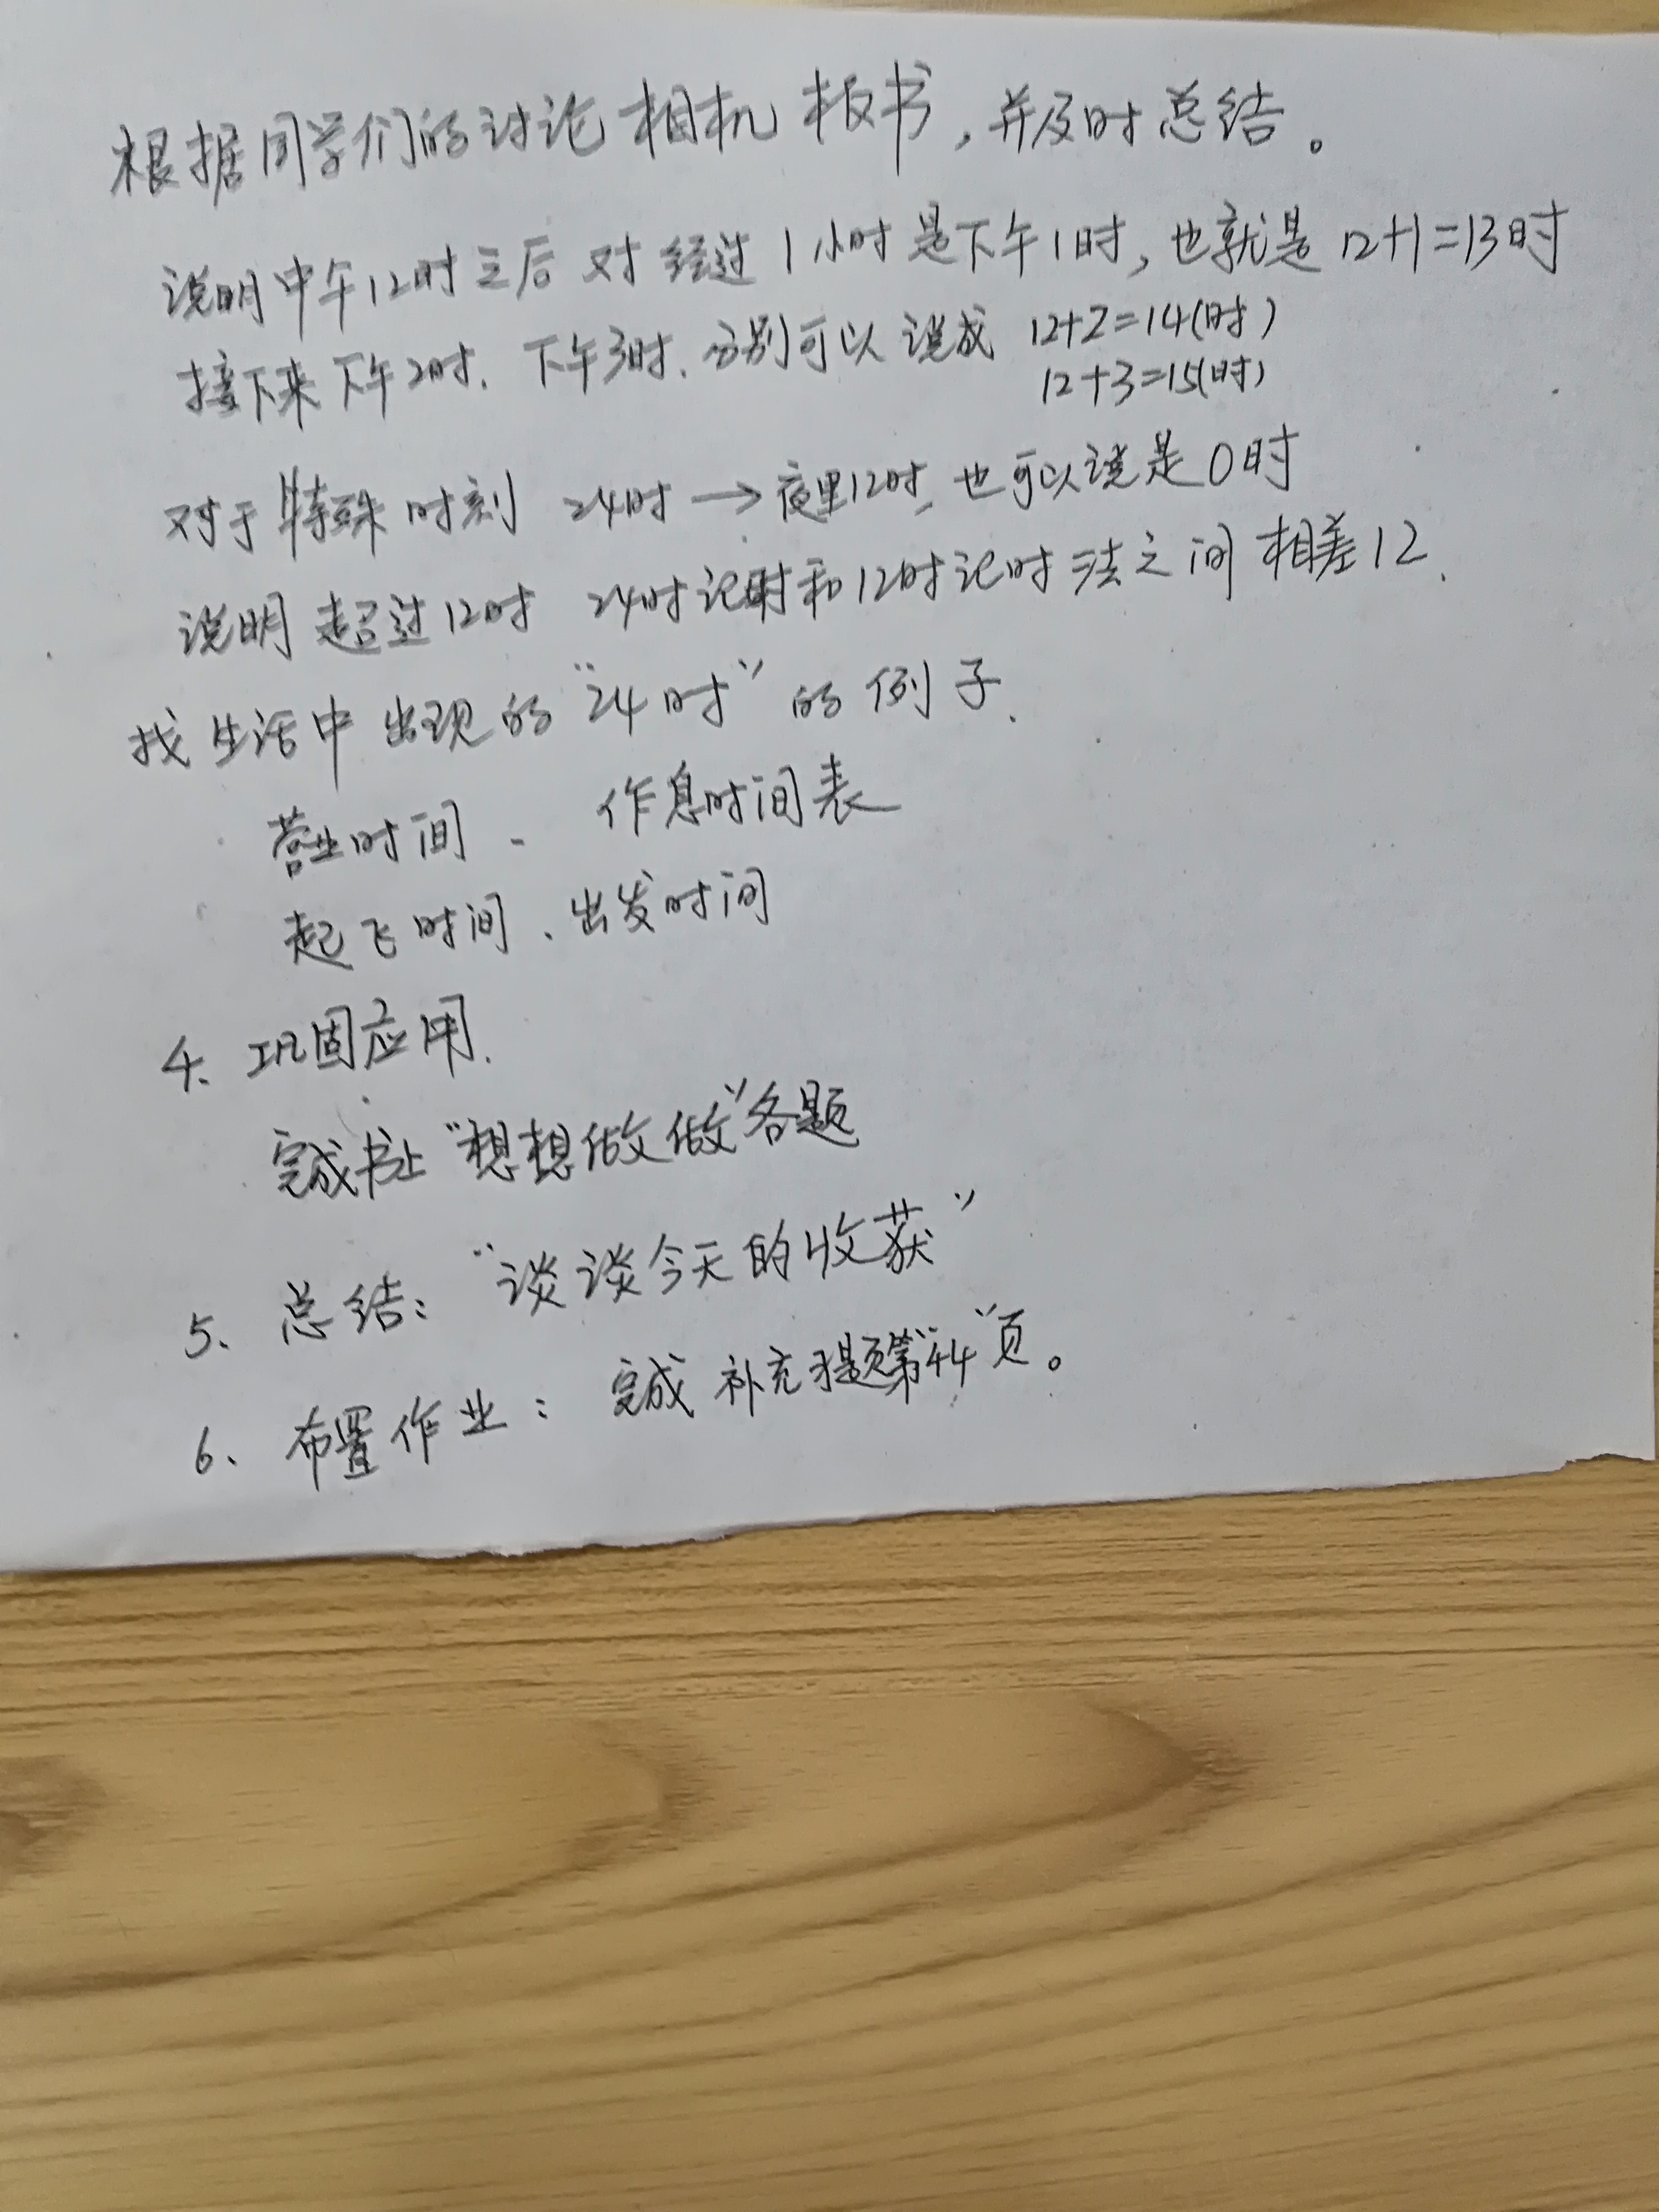 根据同学们的讨论相机板书，并及时总结。
说明中午12时之后 对 经过1小时是下午1时，也就是12+1=13时
接下来下午2时、下午3时、分别可以说成 12+2=14(时)
12+3=15(时)
对于特殊时刻 24时→夜里12时、也可以说是0时
说明超过12时 24时记时和12时记时法之间相差12.
找生活中出现的“24时”的例子.
营业时间、作息时间表
起飞时间、出发时间
4、巩固应用.
完成书上“想想做做”各题
5、总结：“谈谈今天的收获”
6、布置作业：完成补充习题第“44”页。